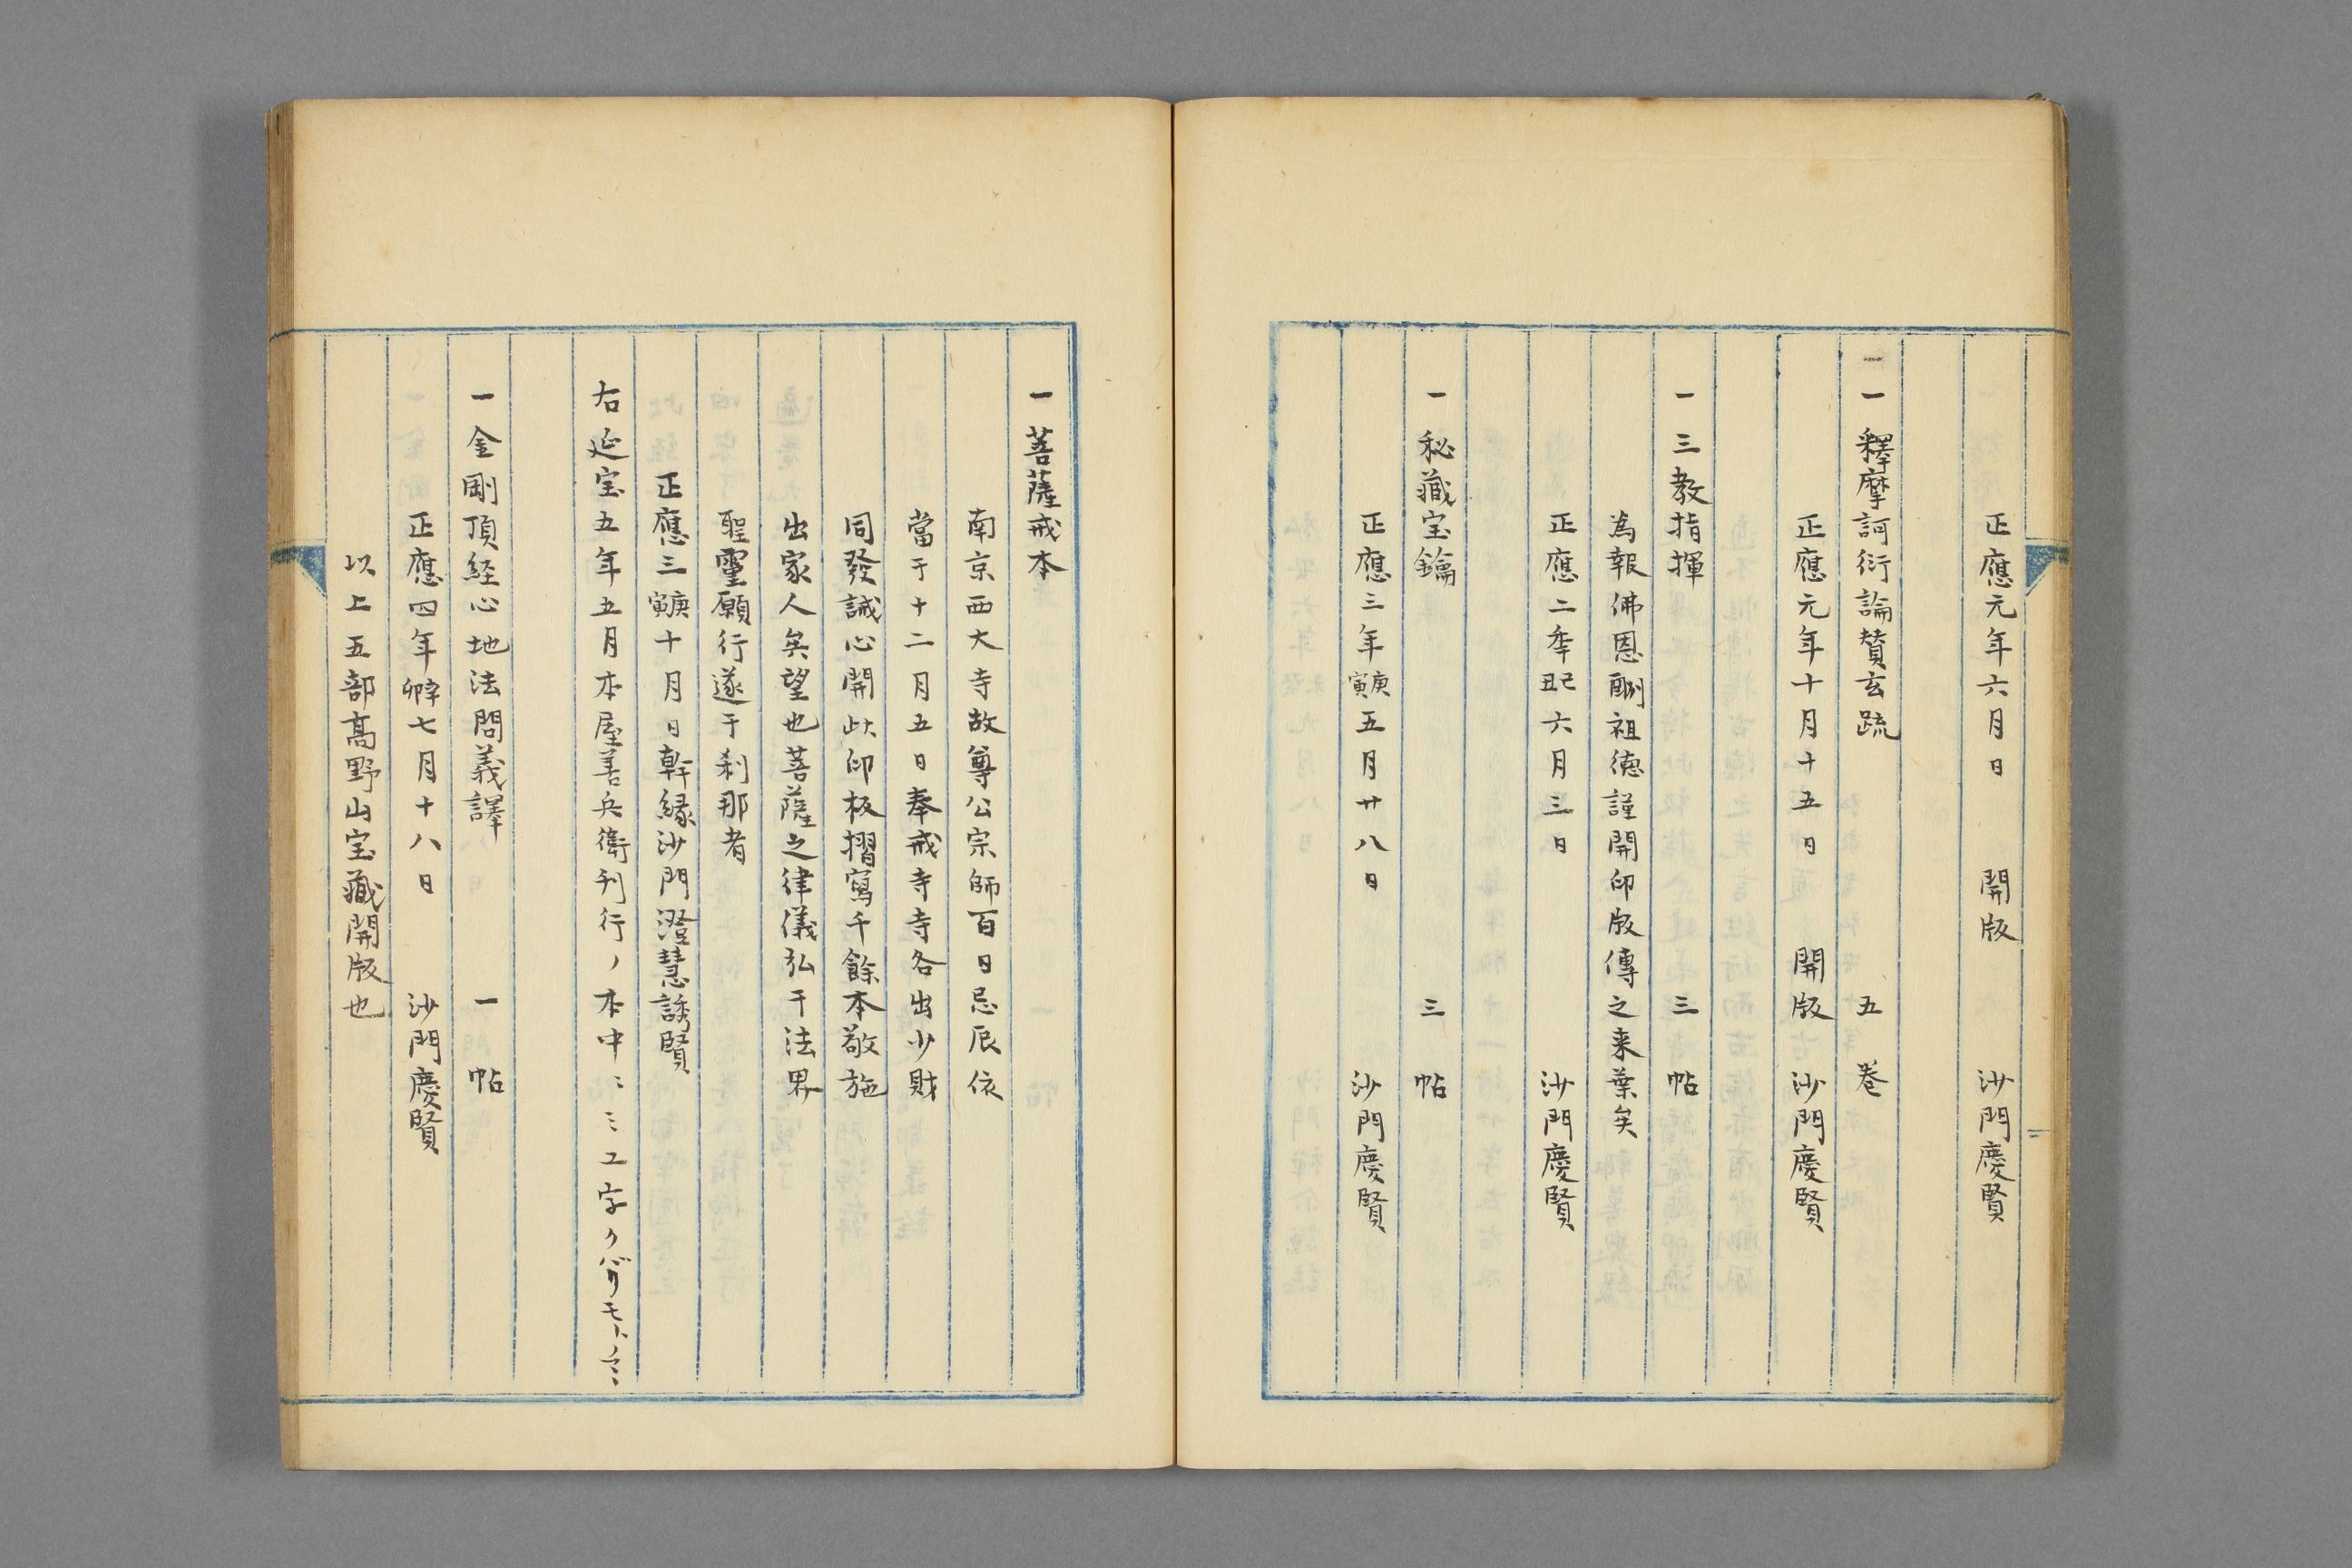 正應元年六月日　開版　沙門慶賢
一釋摩訶衍論賛玄䟽　五巻
正應元年十月十五日　開版　沙門慶賢
一三教指揮　三帖
為報佛恩酬祖德謹開印版傳之来葉矣
正應二季己丑六月三日　沙門慶賢
一秘藏宝鑰　三帖
正應三年庚寅五月廿八日　沙門慶賢
一菩薩戒本
南京西大寺故尊公宗師百日忌辰依
當于十二月五日奉戒寺寺各出少財
同發誠心開此印板摺寫千餘本敬施
出家人矣望也菩薩之律儀弘于法界
聖靈願行遂于刹那者
正應三庚寅十月日幹縁沙門澄慧誘賢
右延宝五年五月本屋善兵衛刊行ノ本中ニ
一金剛頂経心地法問義譯　一帖
正應四年辛卯七月十八日　沙門慶賢
以上五部髙野山宝藏開版也